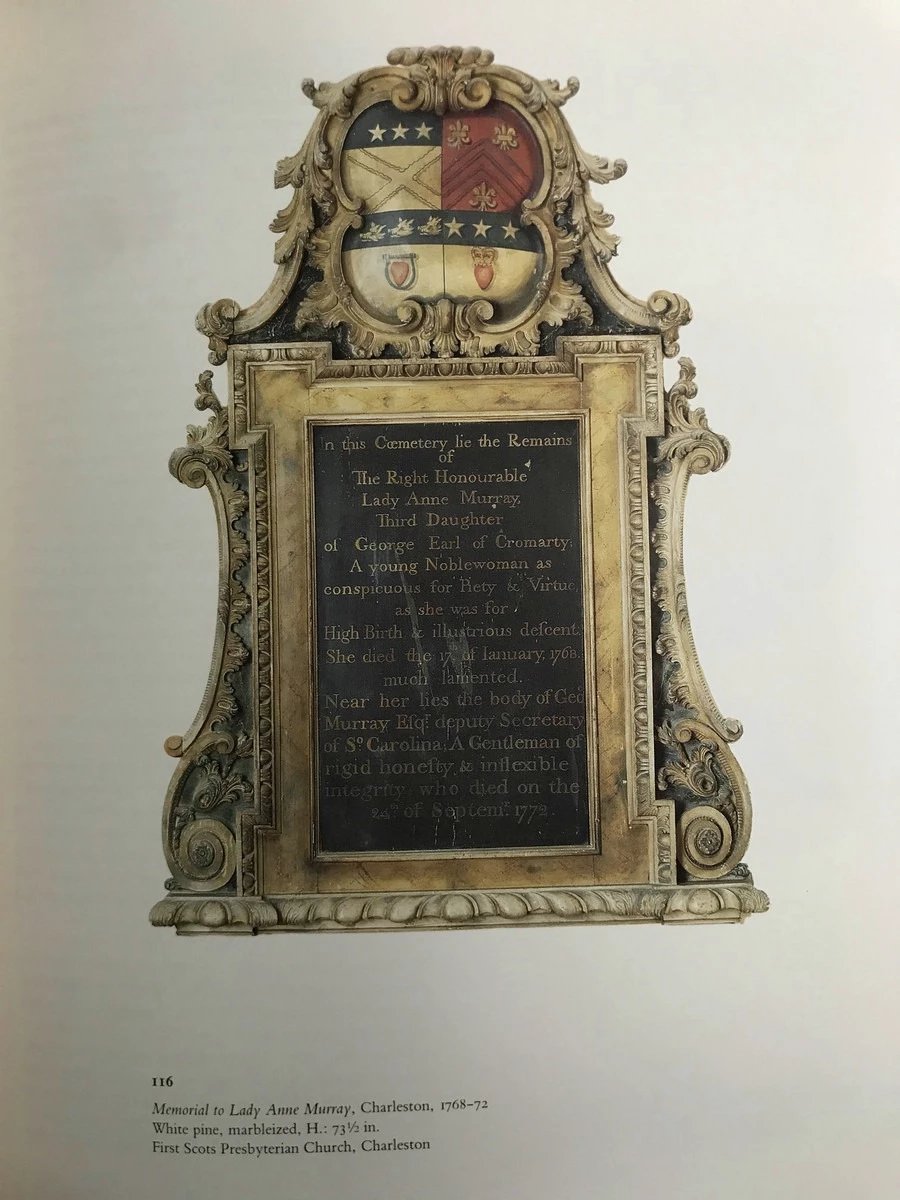 In this Cœmetery lie the Remains
of
The Right Honourable
Lady Anne Murray,
Third Daughter
of George Earl of Cromarty;
A young Noblewoman as
conspicuous for Piety & Virtue,
as she was for
High Birth & illustrious deſcent.
She died the 17 of Ianuary, 1768.
much lamented.
Near her lies the body of Geo
Murray Eſqr. deputy Secretary
of So. Carolina; A Gentleman of
rigid honeſty & inflexible
integrity; who died on the
24th of Septemr. 1772.
116
Memorial to Lady Anne Murray, Charleston, 1768–72
White pine, marbleized, H.: 73½ in.
First Scots Presbyterian Church, Charleston